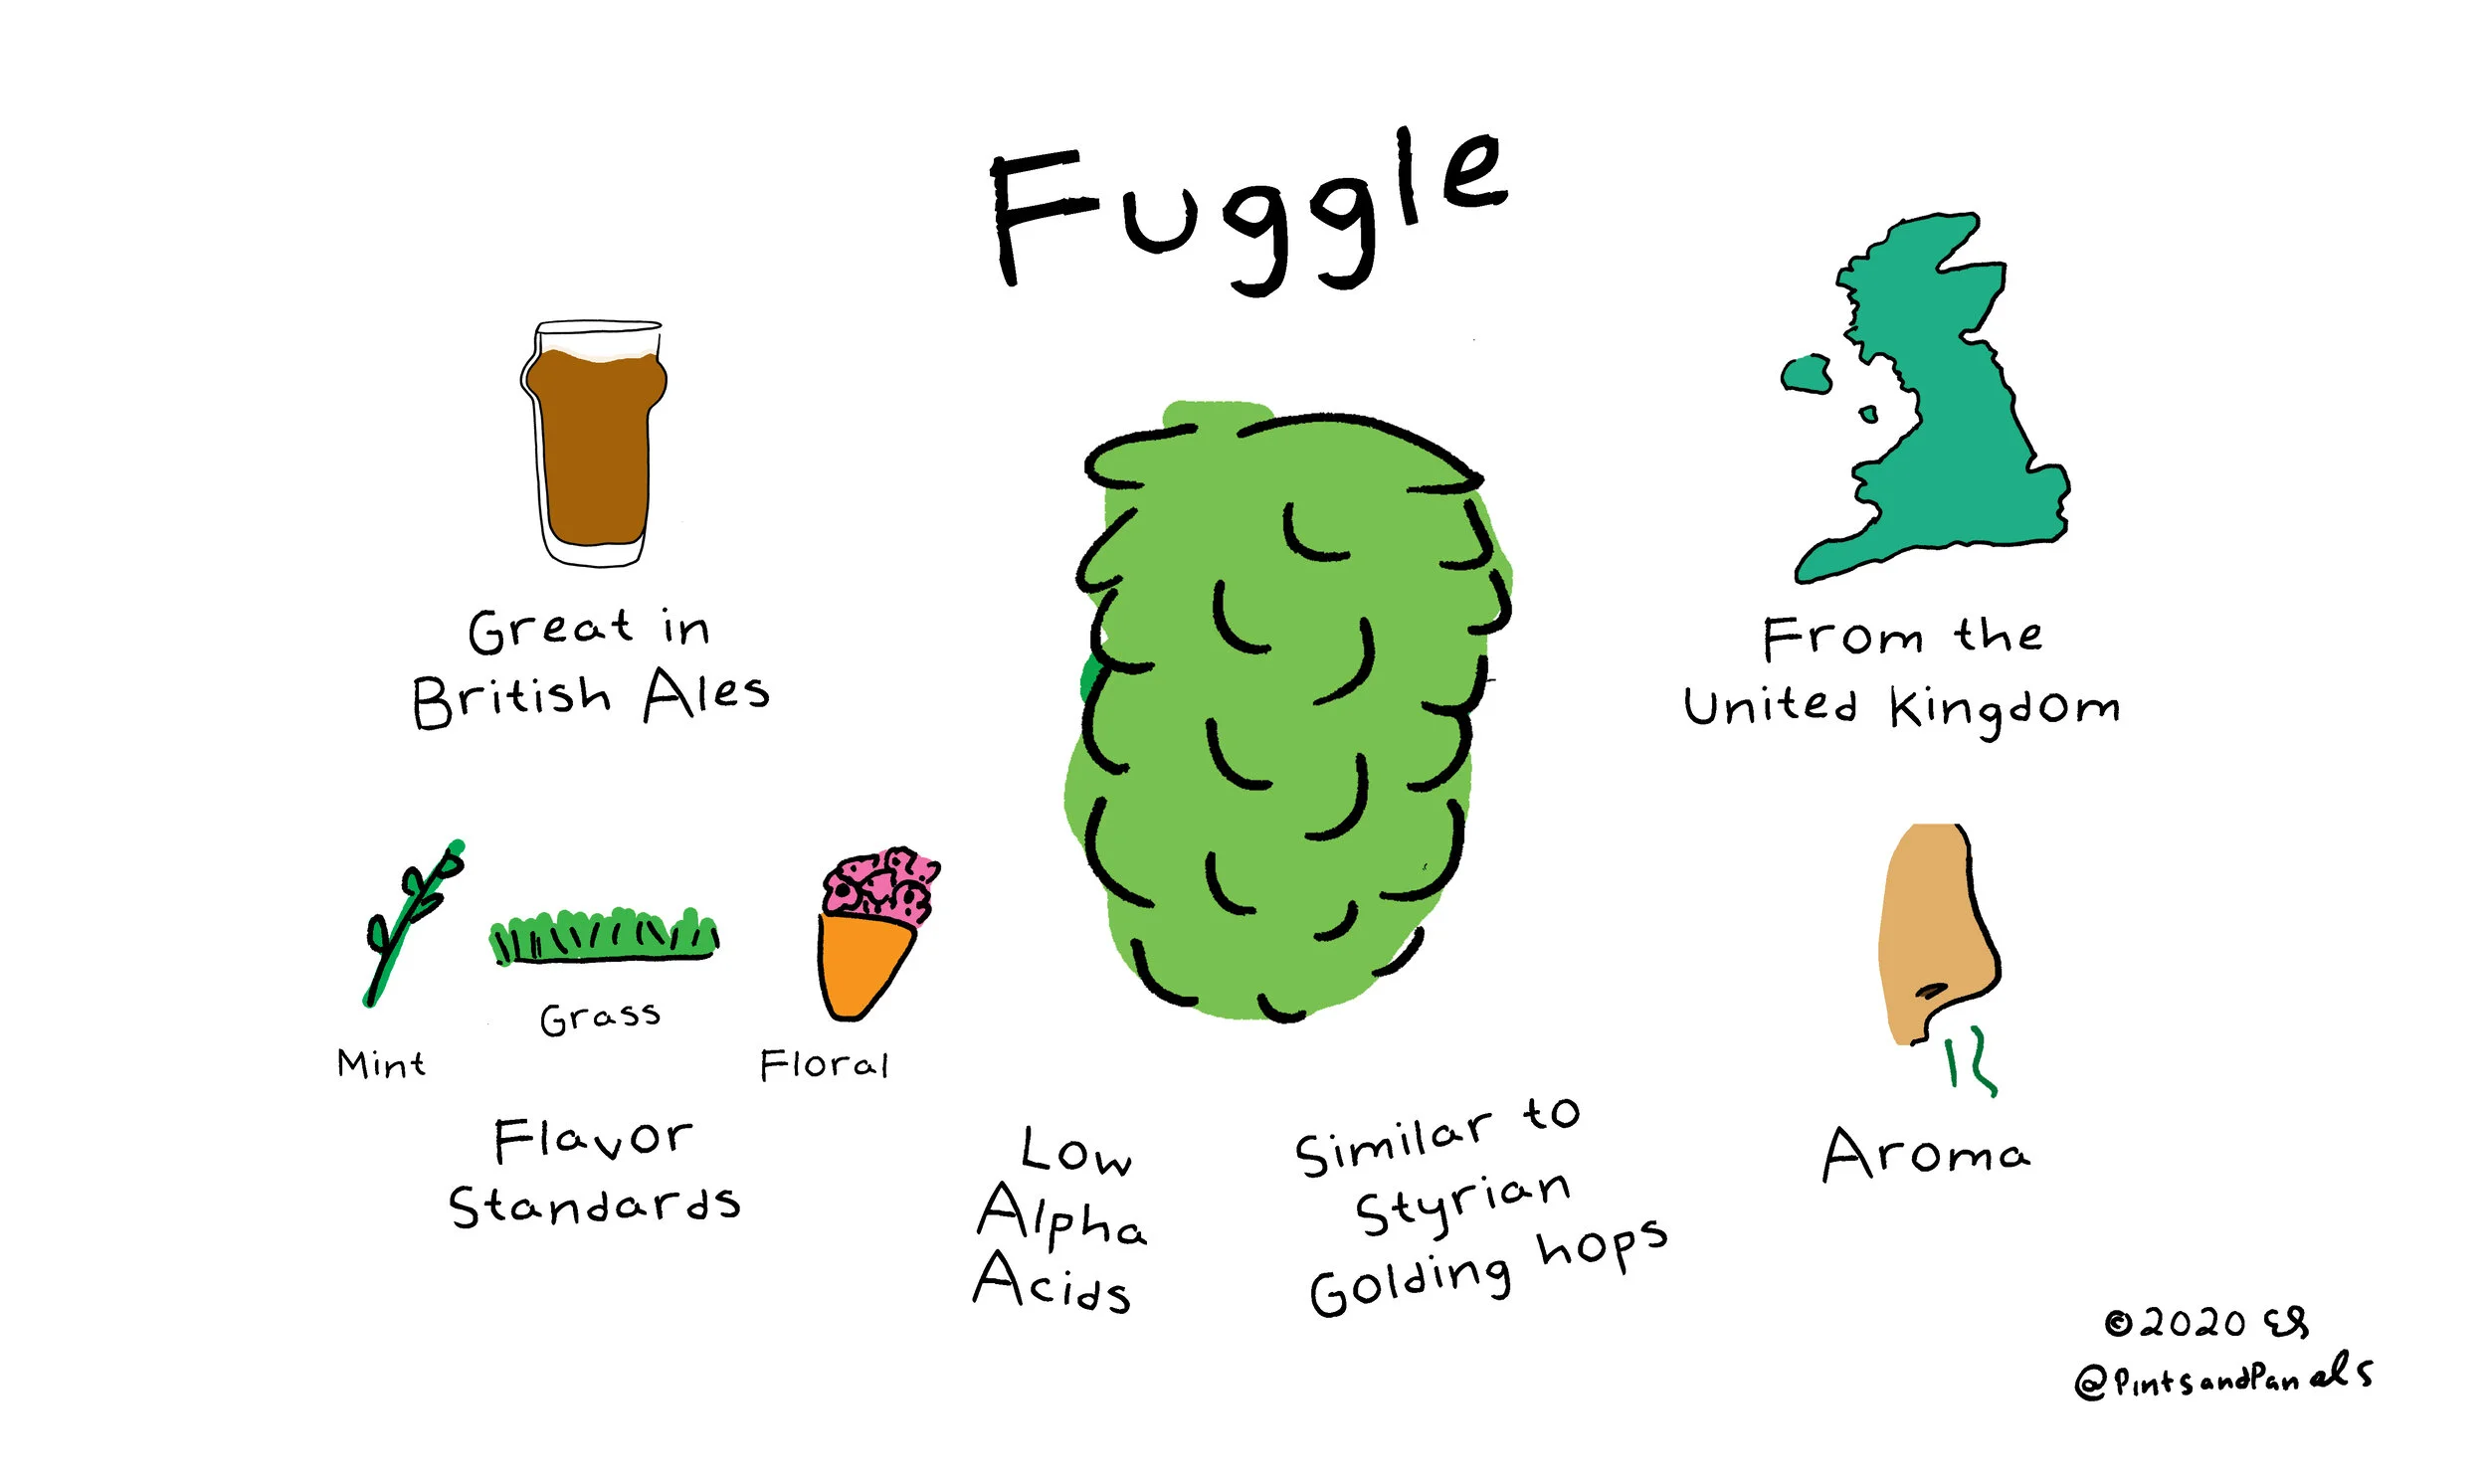 Fuggle
Great in
British Ales
From the
United Kingdom
Mint
Grass
Floral
Flavor
Standards
Low
Alpha
Acids
Similar to
Styrian
Golding hops
Aroma
©2020 ES
@PintsandPanels